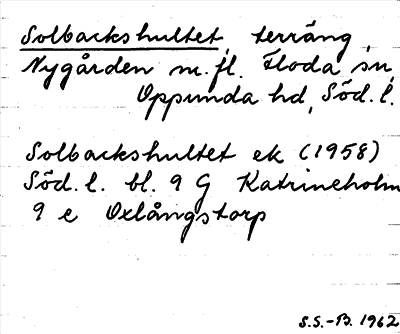 Solbackshultet, terräng,
Nygården m. fl. Floda sn,
Oppunda hd, Söd. l.
Solbackshultet ek (1958)
Söd. l. bl. 9 G Katrineholm
9 e Oxlångstorp
S.S.-B. 1962